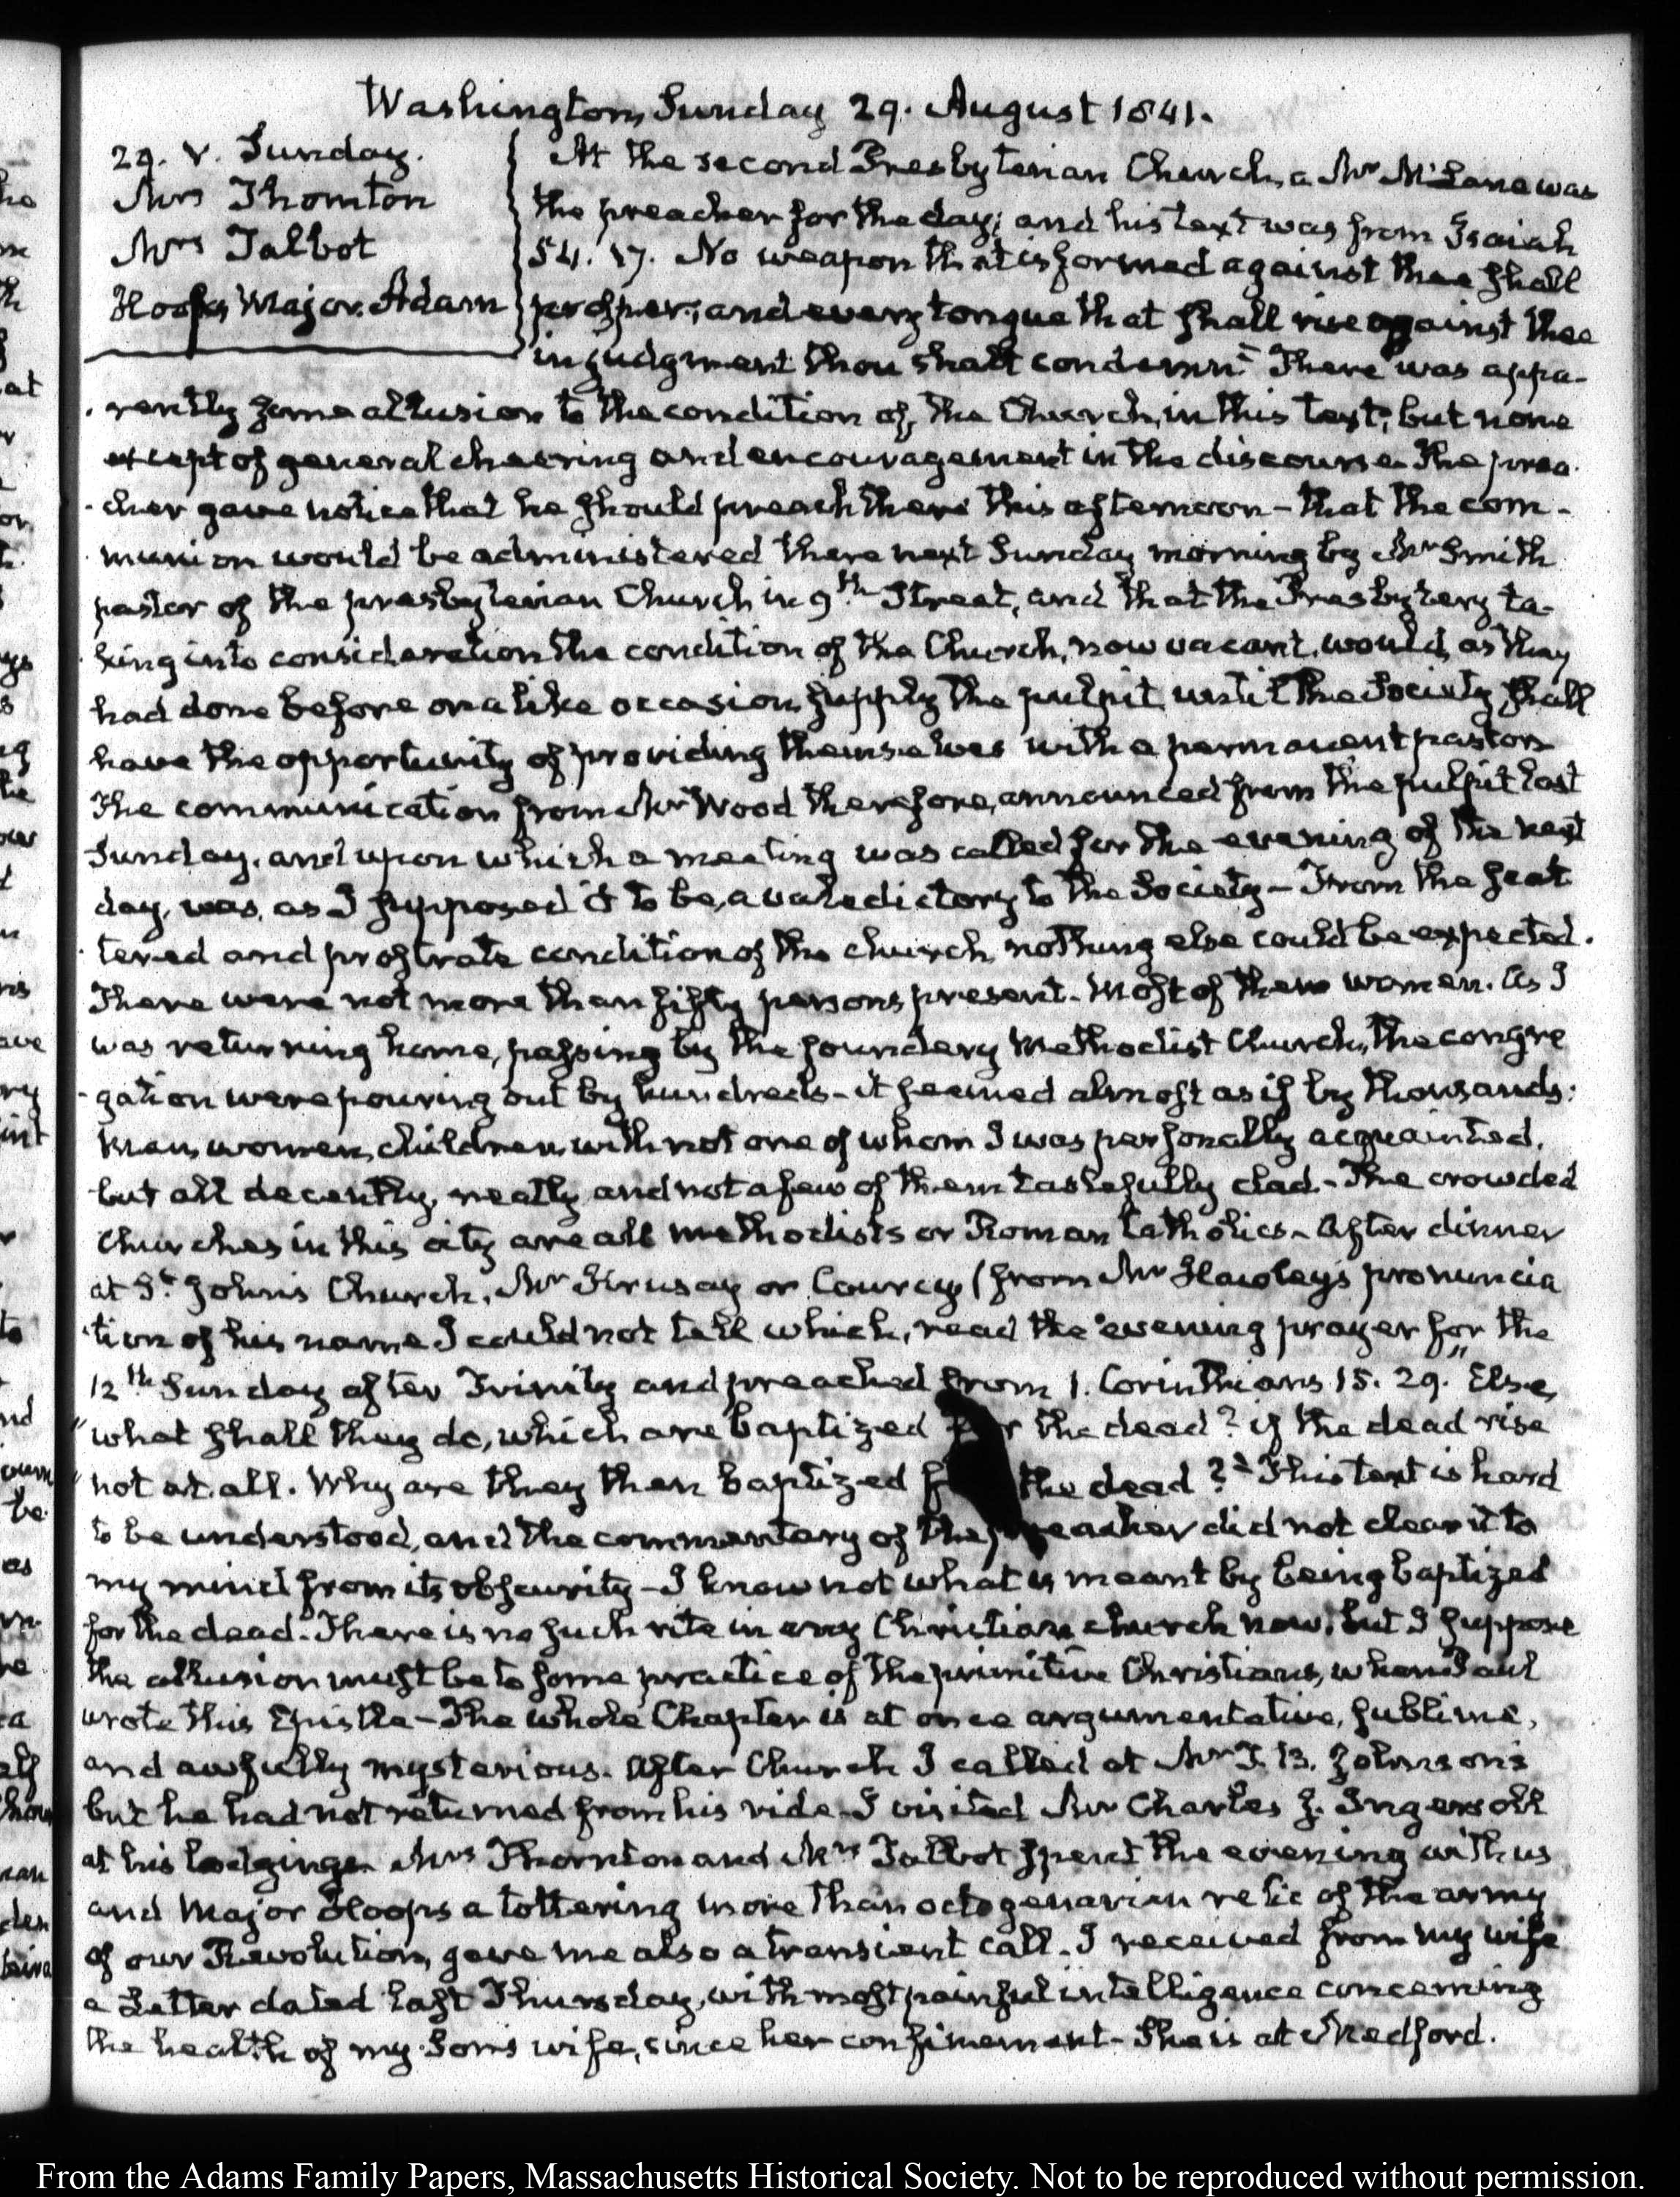 Washington, Sunday 29. August 1841.
29. V. Sunday.
Mrs Thornton
Mrs Talbot
Hoops Major Adam
At the second Presbyterian Church, a Mr McLane was
the preacher for the day; and his text was from Isaiah
54. 17. No weapon that is formed against thee shall
prosper; and every tongue that shall rise against thee
in judgment thou shalt condemn." There was appa-
rently some allusion to the condition of, the Church, in this text; but none
except of general cheering and encouragement in the discourse. The prea-
cher gave notice that he should preach there this afternoon - that the com-
munion would be administered there next Sunday morning by Mr Smith
pastor of the presbyterian Church in 9th Street, and that the Presbytery ta-
king into consideration the condition of the Church, now vacant, would, as they
had done before on a like occasion, supply the pulpit, until the Society shall
have the opportunity of providing themselves with a permanent pastor.
The communication from Mr Wood therefore, announced from the pulpit last
Sunday, and upon which a meeting was called for the evening of the next
day, was, as I supposed it to be, a valedictory to the Society - From the scat
tered and prostrate condition of the church, nothing else could be expected.
There were not more than fifty persons present. Most of them women. As I
was returning home, passing by the foundery Methodist Church, the congre
-gation were pouring out by hundreds - it seemed almost as if by thousands:
Men, women, children, with not one of whom I was personally acquainted,
but all decently, neatly, and not a few of them tastefully clad - The crowded
Churches in this city are all methodists or Roman Catholics - After dinner
at St. John's Church, Mr or Courcy (from Mr Hawley's pronuncia
tion of his name I could not tell which, read the evening prayer for the
12th Sunday after Trinity and preached from 1. Corinthians 15. 29. "Else,
"what shall they do, which are baptized for the dead? if the dead rise
"not at all. Why are they then baptized f the dead?" This text is hard
to be understood, and the commentary of the preacher did not clear it to
my mind from its obscurity - I know not what is meant by being baptized
for the dead. There is no such rite in any Christian church now, but I suppose
the allusion must be to some practice of the primitive Christians, when Paul
wrote this Epistle - The whole Chapter is at once argumentative, sublime,
and awfully mysterious. After Church I called at Mr J. B. Johnson's
but he had not returned from his ride - I visited Mr Charles J. Ingersoll
at his lodgings. Mrs Thornton and Mrs Talbot spent the evening with us
and Major Hoops a tottering more than octogenarian relic of the army
of our Revolution, gave me also a transient call. I received from my wife
a Letter dated last Thursday, with most painful intelligence concerning
the health of my Son's wife, since her confinement - She is at Medford.
From the Adams Family Papers, Massachusetts Historical Society. Not to be reproduced without permission.